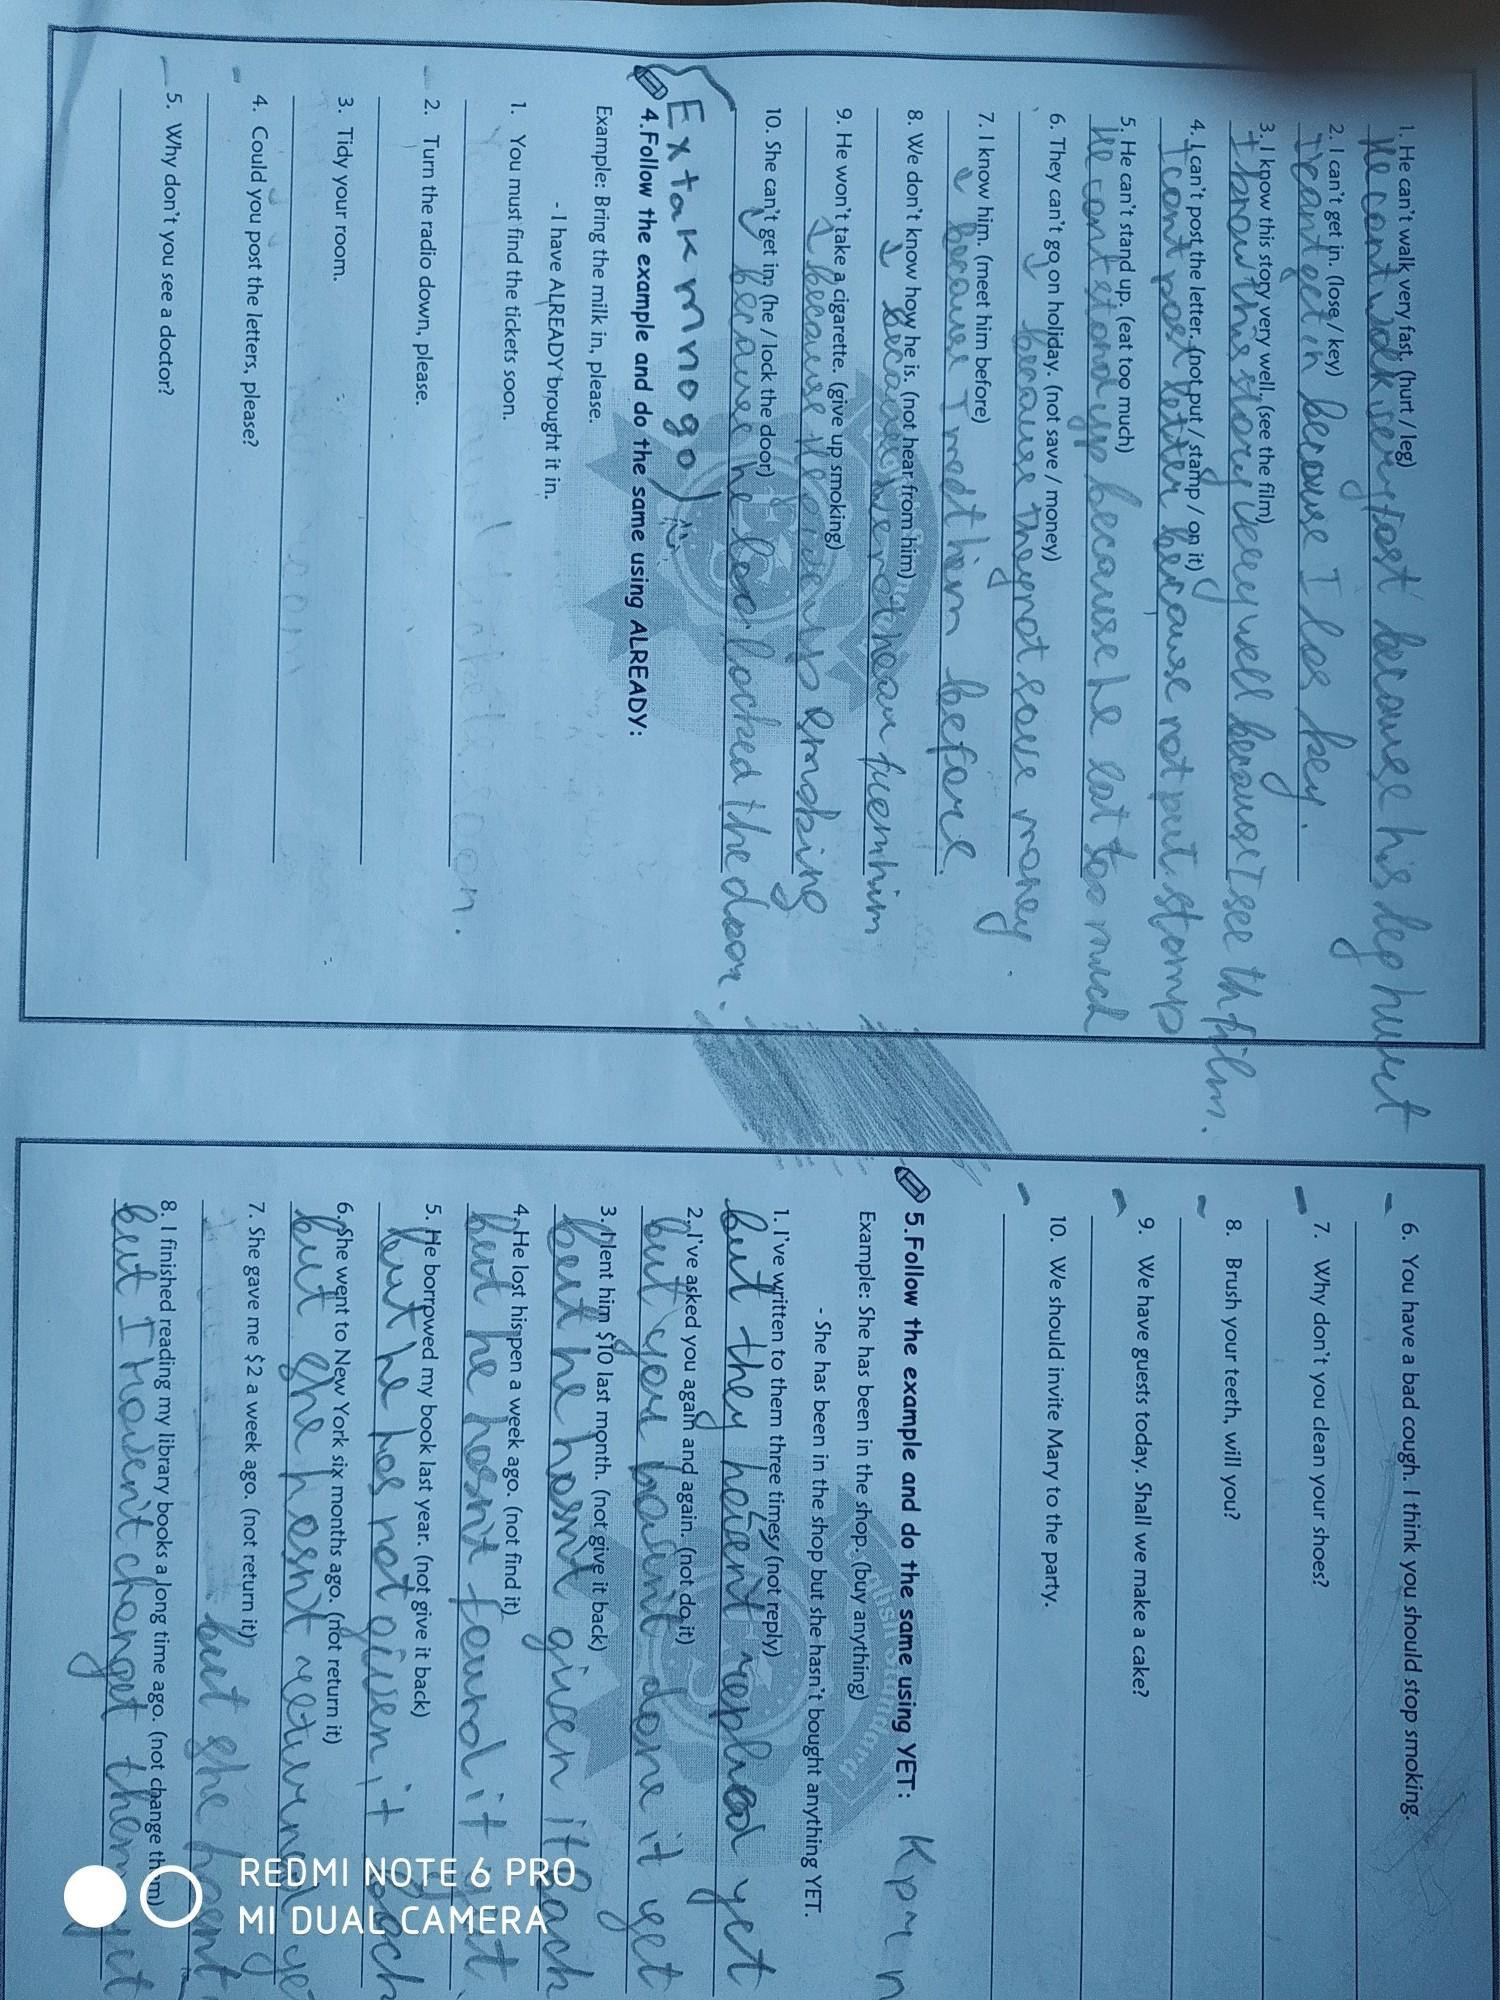 1. He can't walk very fast. (hurt / leg)
He cant walk very fast because his leg hurt
2. I can't get in. (lose / key)
I cant get in because I los key.
3. I know this story very well. (see the film)
I know this story very well because I see th film.
4. I can't post the letter. (not put / stamp / on it)
I cant post letter because not put stamp
5. He can't stand up. (eat too much)
He cant stand up because he eat too much
6. They can't go on holiday. (not save / money)
because they not save money.
7. I know him. (meet him before)
because I med him before.
8. We don't know how he is. (not hear from him)
because we not hear him
9. He won't take a cigarette. (give up smoking)
because he smoking
10. She can't get in. (he / lock the door)
because he locked the door.
Extak mnogo
4. Follow the example and do the same using ALREADY:
Example: Bring the milk in, please.
- I have ALREADY brought it in.
1. You must find the tickets soon.
2. Turn the radio down, please.
3. Tidy your room.
4. Could you post the letters, please?
5. Why don't you see a doctor?
6. You have a bad cough. I think you should stop smoking.
7. Why don't you clean your shoes?
8. Brush your teeth, will you?
9. We have guests today. Shall we make a cake?
10. We should invite Mary to the party.
5. Follow the example and do the same using YET:
Example: She has been in the shop. (buy anything)
- She has been in the shop but she hasn't bought anything YET.
1. I've written to them three times, (not reply)
but they yet
2. I've asked you again and again. (not do it)
but you done it yet
3. I lent him $10 last month. (not give it back)
but he hasn't given it back
4. He lost his pen a week ago. (not find it)
but he hasn't found it yet
5. He borrowed my book last year. (not give it back)
but he has not given it back
6. She went to New York six months ago. (not return it)
but she hasn't
7. She gave me $2 a week ago. (not return it)
but she
8. I finished reading my library books a long time ago. (not change them)
but I haven't yet
REDMI NOTE 6 PRO
MI DUAL CAMERA